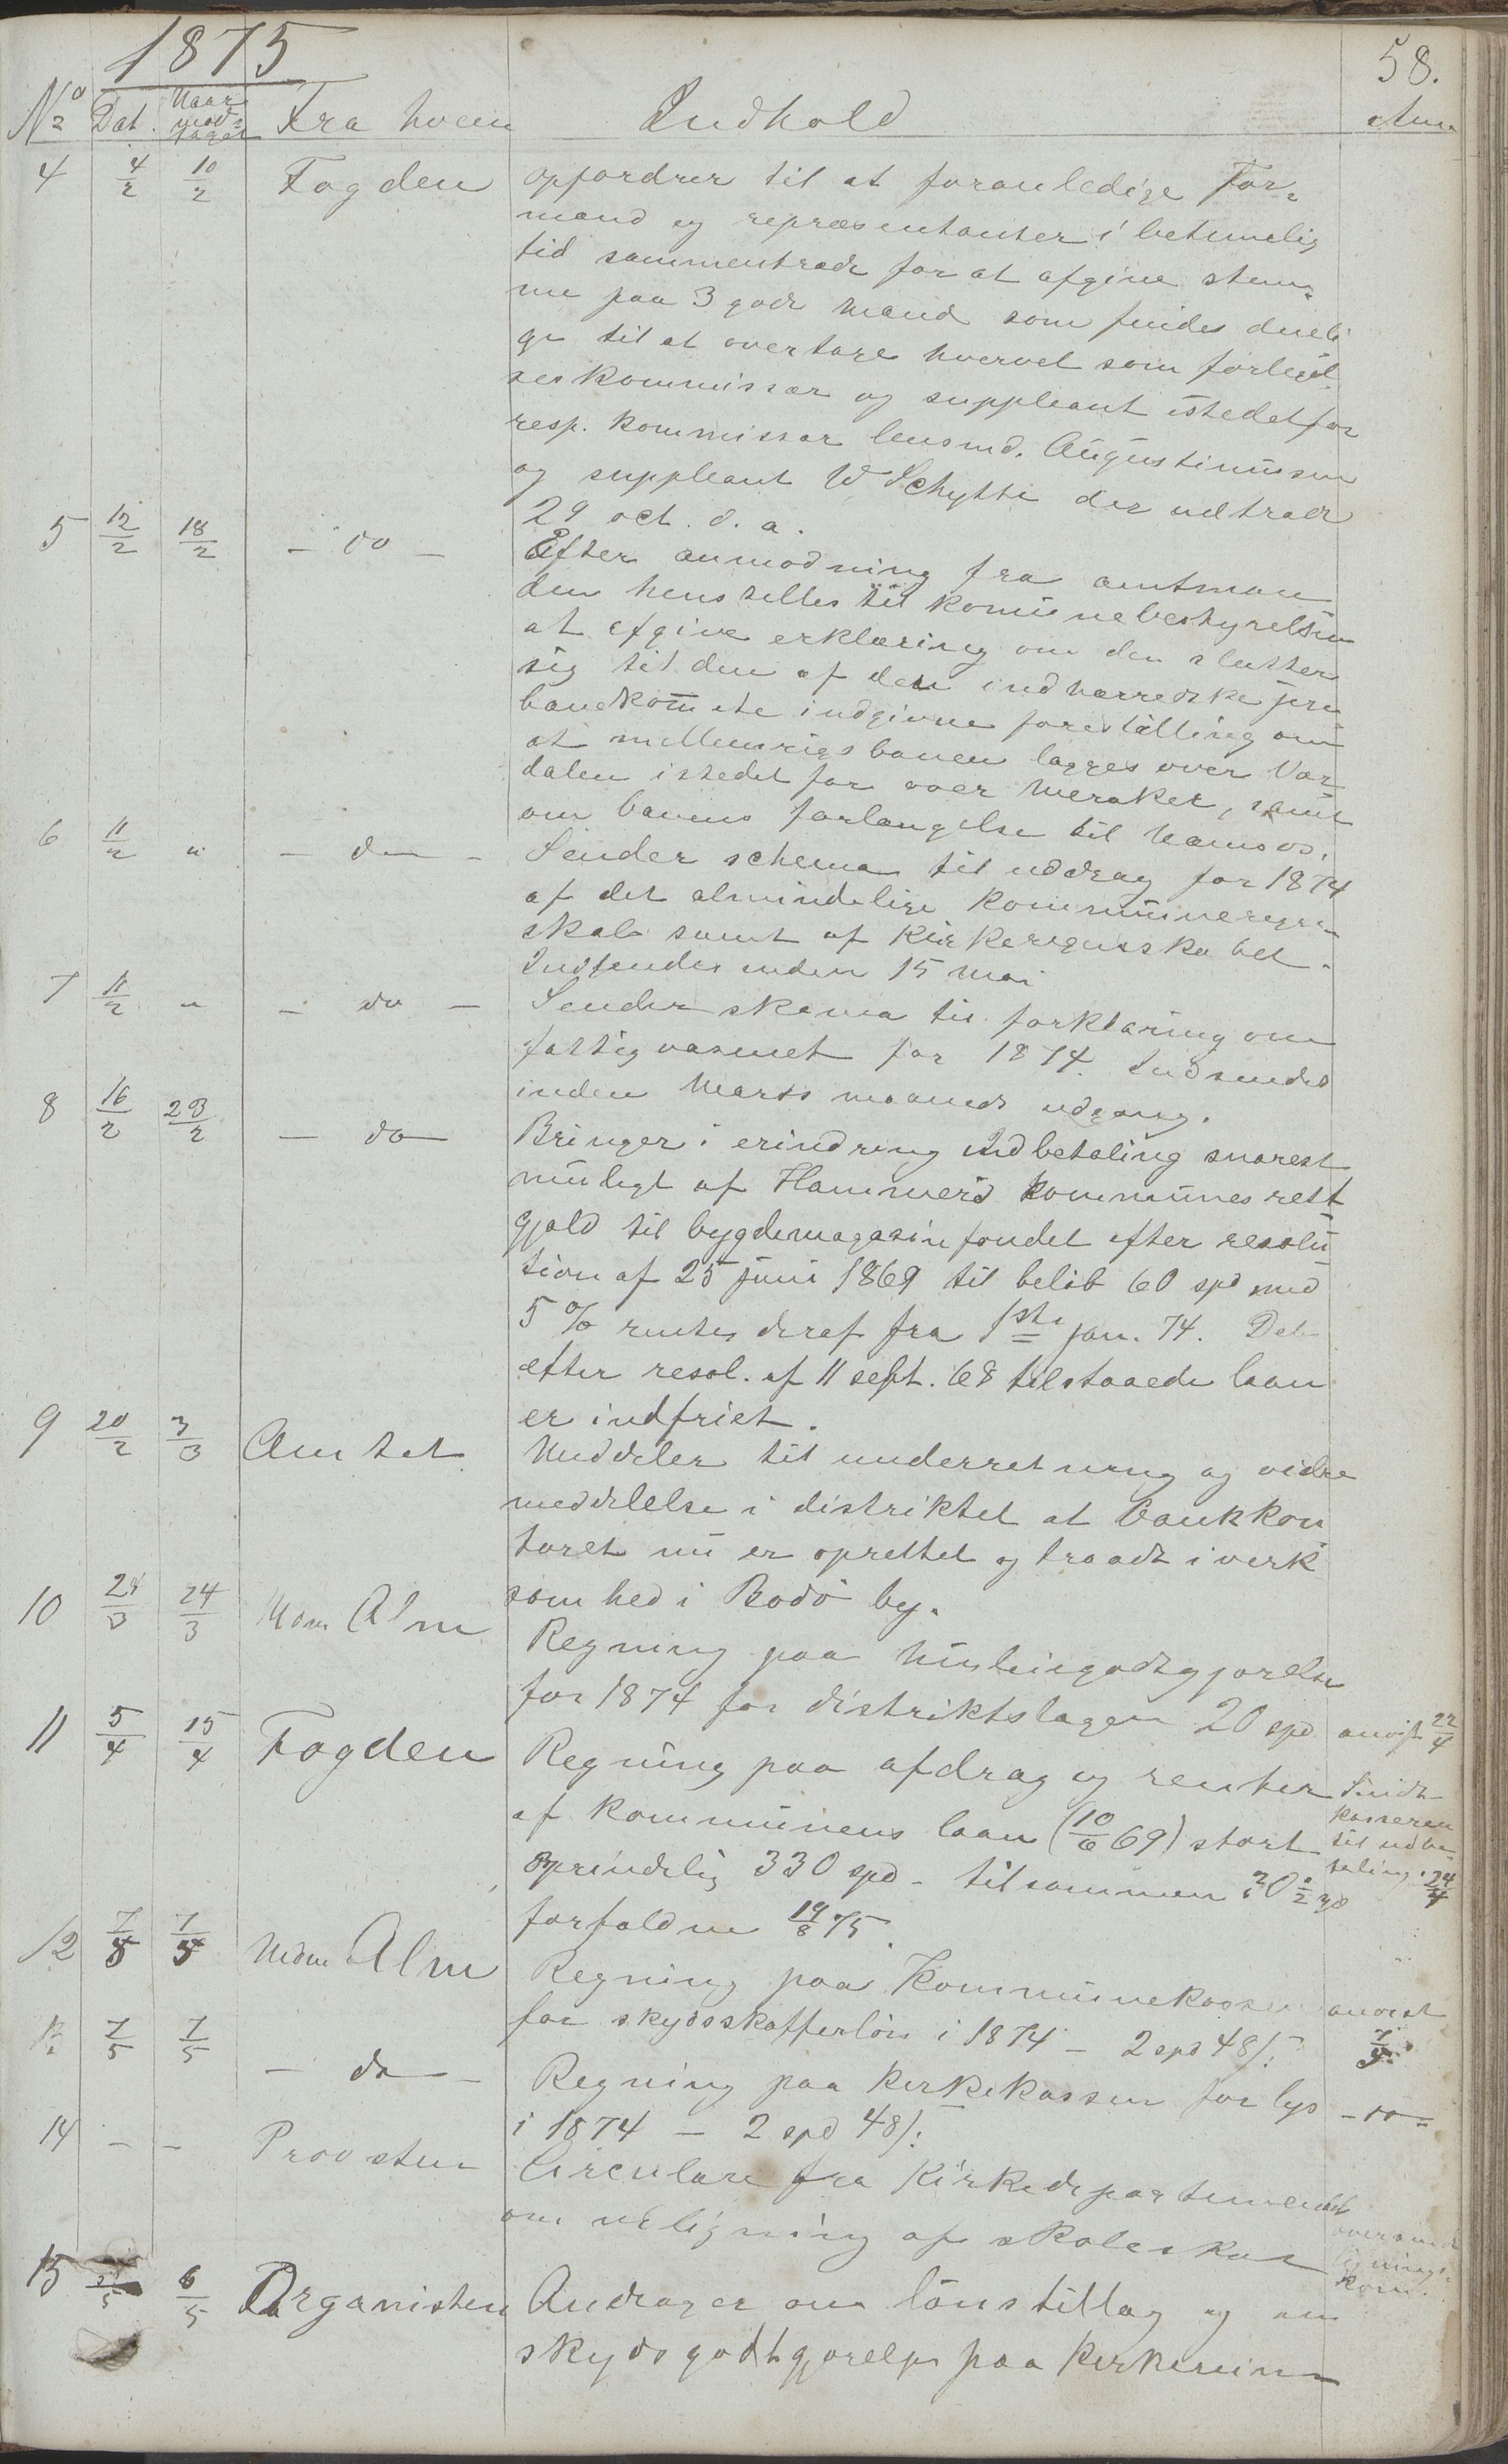 1875
58.
No Dat. Naar modtaget Fra hvem Indhold Anm.
4 4/2 10/2 Fogden opfordrer til at foranledige For=
mænd og repræsentanter i betimelig
tid sammentræde for at afgive stem=
me paa 3 gode mænd som findes dueli
ge til at overtage hvervet som forligel
seskommissær og suppleant istedetfor
resp. kommissær lensmd. Augustinussen
og suppleant W Schytte der udtræde
29 oct. d. a.
5 12/2 18/2 - do - Efter anmodning fra amtman
den henstilles til komunebestyrelsen
at afgive erklæring om den slutter
sig til den af den indherredske jern
banekomite indgivne forestilling om
at mellemrigsbanen lægges over Vær
dalen istedetfor over Meraker, samt
om banens forlængelse til Namsos.
6 11/2 " - do - Sender schema til uddrag for 1874
af det almindelige kommuneregn=
skab samt af kirkeregnskabet.
Indsendes inden 15 mai
7 11/2 " - do - Sender skema til forklaring om
fattigvæsenet for 1874. Indsendes
inden Marts maaneds udgang.
8 16/2 23/2 - do Bringer i erindring indbetaling snarest
muligt af Hammerø kommunes rest
gjæld til bygdemagasinfondet efter resolu
tion af 25 juni 1869 til beløb 60 spd med
5 % renter deraf fra 1ste jan. 74. Det
efter resol. af 11 sept. 68 tilstaaede laan
er indfriet.
9 20/2 3/3 Amtet Meddeler til underretning og vidre
meddelelse i distriktet at bankkon
toret nu er oprettet og traadt i virk
somhed i Bodø by.
10 24/3 24/3 Mdm Alm Regning paa husleiegodtgjørelse
for 1874 for distriktslægen 20 spd anvist 22/4
11 5/4 15/4 Fogden Regning paa afdrag og renter Sendt
af kommunens laan (10/6 69) stort kasseren
til udbe
oprindelig 330 spd - tilsammen 30 1/2 spd taling 24/4
forfaldne 19/8 75.
12 7/5 7/5 Mdm Alm Regning paa Kommunekassen anvist
for skydsskafferløn i 1874 - 2 spd 48/: 7/5
13 7/5 7/5 - do - Regning paa kirkekassen for lys - do -
i 1874 - 2 spd 48/:
14 - - Provsten Circulære fra Kirkedepartementet
om udligning af skoleskat oversendt
ligning=
kom.
15 5 6/5 Organisten Andrager om lønstillæg og om
skydsgodtgjørelse paa kirkerein